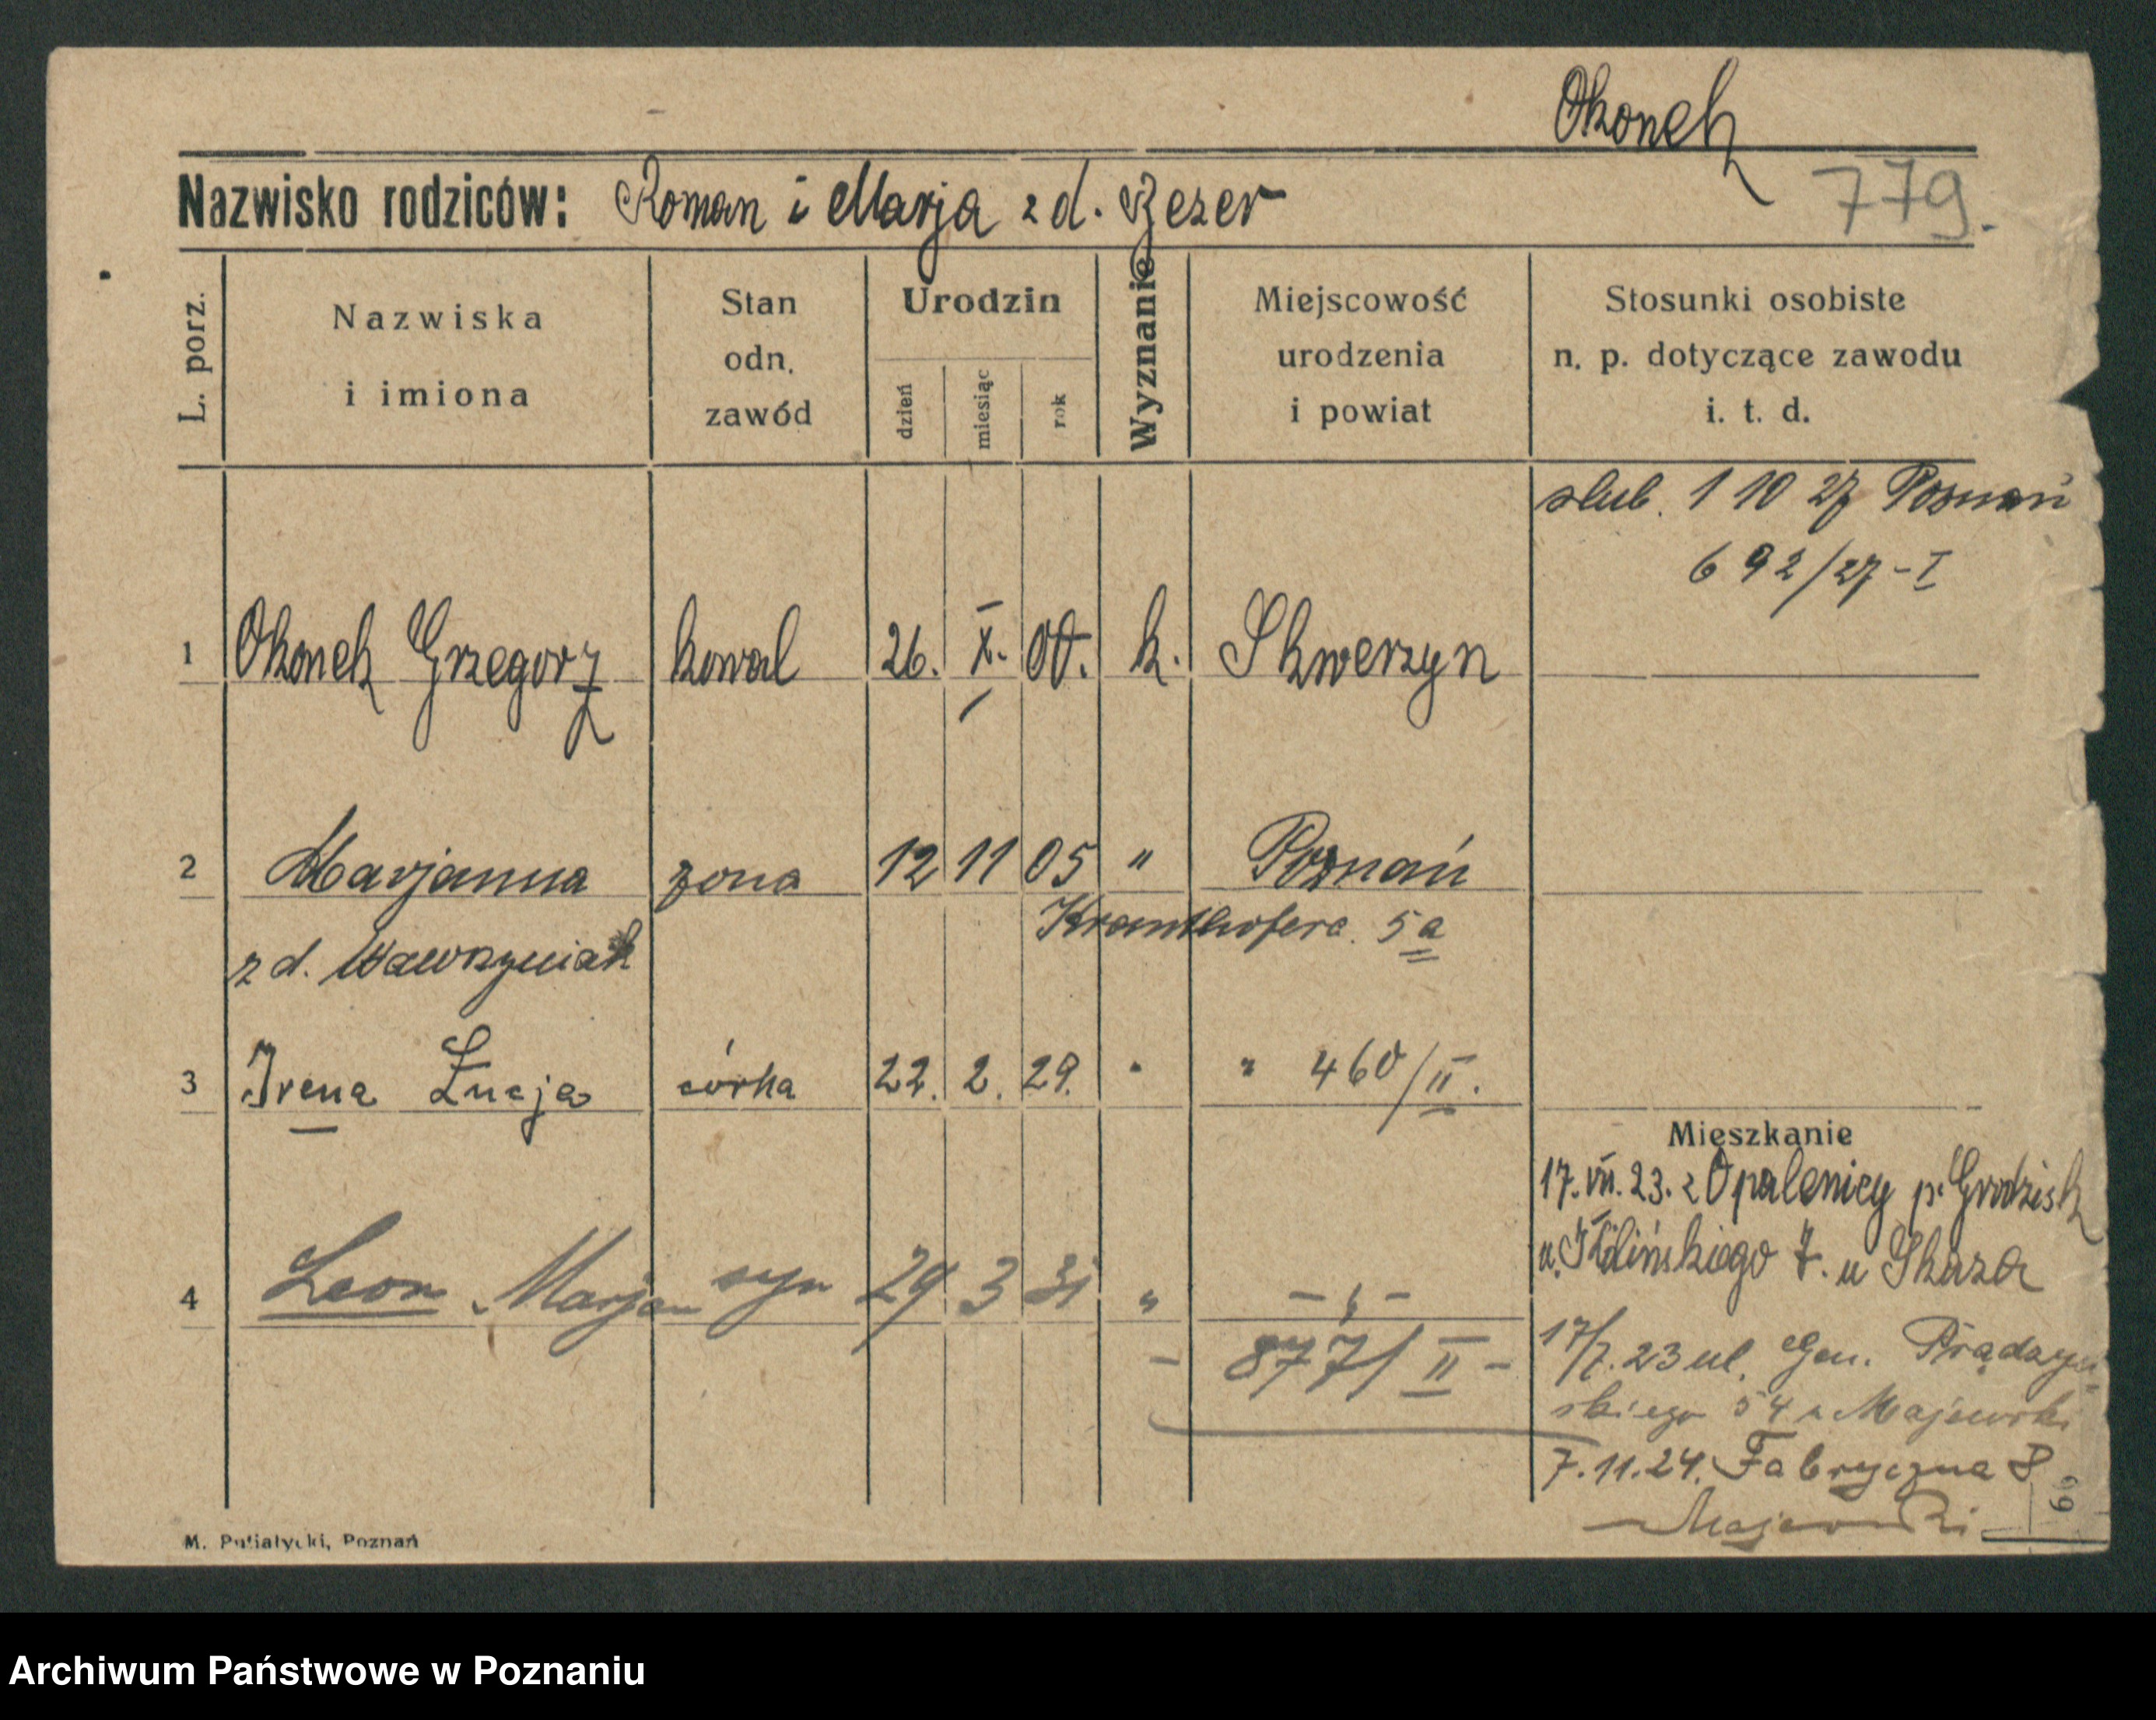 Okonek
Nazwisko rodziców: Roman i Marja z d. Jezer
779.
L. porz.
Nazwiska
i imiona
Stan
odn.
zawód
Urodzin
dzień
miesiąc
rok
Wyznanie
Miejscowość
urodzenia
i powiat
Stosunki osobiste
n. p. dotyczące zawodu
i. t. d.
slub. 1 10 27 Poznań
692/27-I
1 Okonek Grzegorz kowal 26. X. 00. k. Skwerzyn
2 Marjanna żona 12 11 05 " Poznań
Kranthofera 5a
z d. Wawrzyniak
3 Irena Łucja córka 22. 2. 29. " " 460/II.
Mieszkanie
17.VII.23. z Opalenicy p. Grodzisk
u. Kilińskiego 7. u Skaza
4 Leon Marjan syn 29 3 31 " - " -
- 877/II -
17/7.23 ul. Gen. Prądzyń-
skiego 54 u Majewski
7.11.24. Fabryczna 8
Majewski
M. Putiatycki, Poznań
Archiwum Państwowe w Poznaniu